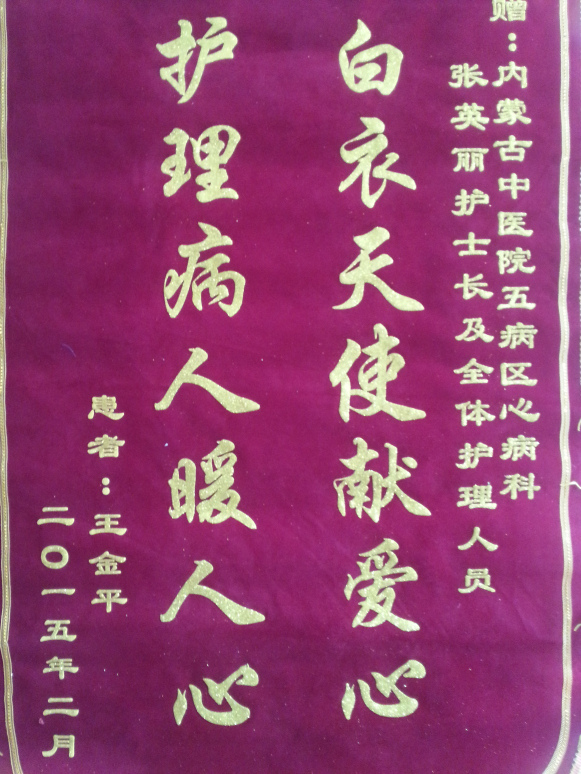 赠：内蒙古中医院五病区心病科
张英丽护士长及全体护理人员
白衣天使献爱心
护理病人暖人心
患者：王金平
二〇一五年二月